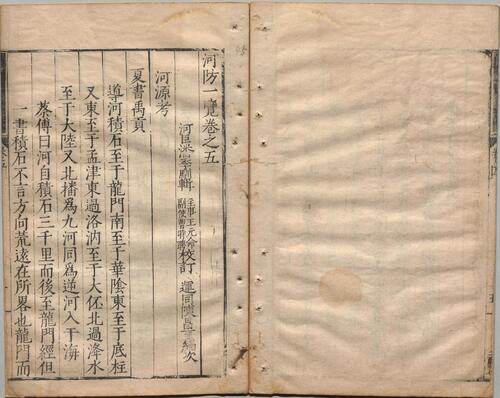 河防一覽卷之五
河臣潘季馴輯
校訂
運同陳昌言編次
河源考
夏書禹貢
導河積石至于龍門南至于華陰東至于底柱
又東至于孟津東過洛汭至于大伾北過洚水
至于大陸又北播爲九河同爲逆河入于海
蔡傳曰河自積石三千里而後至龍門經但
一書積石不言方向荒遠在所畧也龍門而